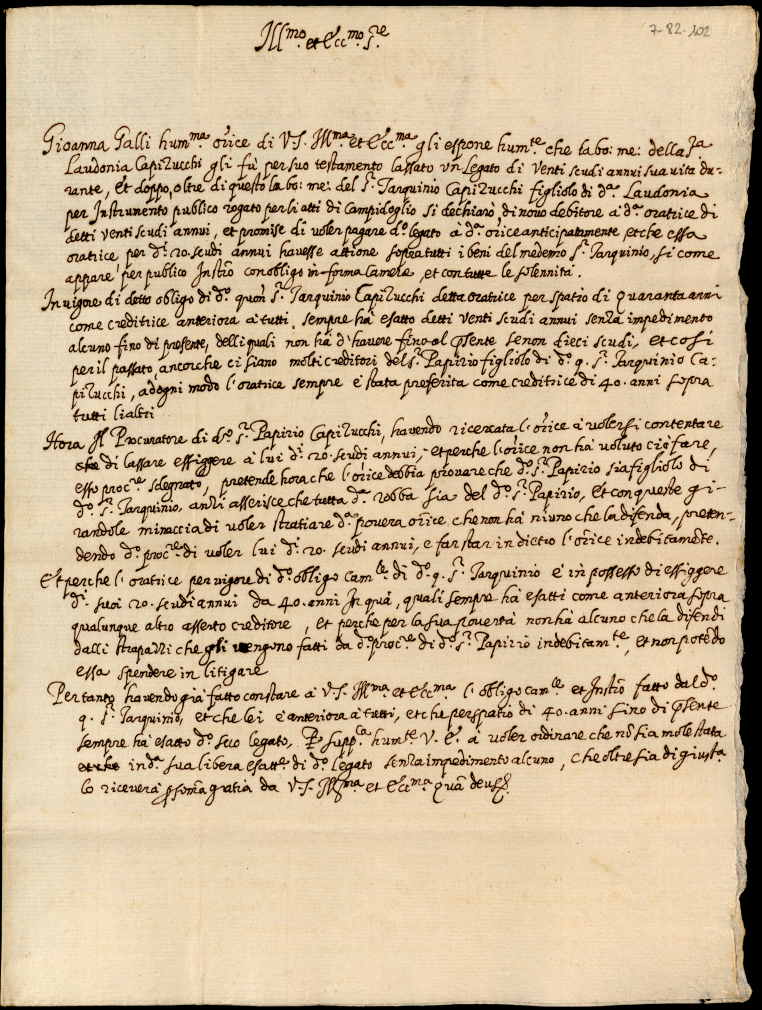 7-82-102
Ill^mo. et Ecc^mo S^re
Gioanna Galli hum^ma or̃ice di V.S. Ill^ma et Ecc^ma gli espone hum^te che la bo: me: della S^a
Laudonia Capizucchi gli fù per suo testamento lassato un legato di Venti scudi annui sua vita du-
rante, Et doppo, oltre di questo la bo: me: del S^r. Tarquinio Capizucchi figliolo di d^a. Laudonia
per Instrumento publico rogato per li atti di Campidoglio si dechiarò di novo debitore à d^a. oratrice di
detti venti scudi annui, et promise di voler pagare d^o. legato à d^a. or̃ice anticipatamente, et che essa
oratrice per d^i. 20. scudi annui havesse attione sopra tutti i beni del medemo S^r. Tarquinio, si come
appare per publico Instro con obligo in forma Camerę, et con tutte le solennità.
In vigore di detto obligo di d^o. quon S^r. Tarquinio Capizucchi detta oratrice per spatio di quaranta anni
come creditrice anteriora à tutti sempre hà esatto detti venti scudi annui senza impedimento
alcuno fino di presente, delli quali non hà d'havere fino al p̃sente se non dieci scudi, et così
per il passato, ancorche ci siano molti creditori del S^r. Papirio figliolo di d^o. q. S^r. Tarquinio Ca:
pizucchi, ad ogni modo l'oratrice sempre è stata preferita come creditrice di 40. anni sopra
tutti li altri
Hora Il Procuratore di d^o. S^r. Papirio Capizucchi, havendo ricercata l'or̃ice à volersi contentare
di lassare essiggere à lui d^i. 20. scudi annui, et perche l'or̃ice non hà voluto ciò fare,
esso proc^re sdegnato, pretende hora che l'or̃ice debbia provare che d^o. S^r. Papirio sia figliolo di
d^o. S^r. Tarquinio, anzi asserisce che tutta d^a. robba sia del d^o. S^r. Papirio, Et con queste gi-
randole minaccia di voler stratiare d^a. povera or̃ice, che non hà niuno che la difenda, preten-
dendo d^o. proc^re. di voler lui d^i. 20. scudi annui, e far star in dietro l'or̃ice indebitam̃te.
Et perche l'oratrice per vigore di d^o. obligo Cam^le di d^o. q. S^r. Tarquinio è in possesso di essiggere
d^i. suoi 20. scudi annui da 40. anni In quà, quali sempre hà esatti come anteriora sopra
qualunque altro asserto creditore, Et perche per la sua povertà non hà alcuno che la difendi
dalli strapazzi che gli vengono fatti da d^o. proc^re. di d^o. S^r. Papirio indebitam^te, et non potẽdo
essa spendere in litigare
Pertanto havendo già fatto constare à V.S. Ill^ma. et Ecc^ma l'obligo cam^le. et Instrõ fatto dal d^o.
q. S^r. Tarquinio, et che lei è anteriora à tutti, et che per spatio di 40. anni fino di p̃sente
sempre hà esatto d^o. suo legato, supp^ca hum^te. V. E. à voler ordinare che nõ sia molestata
in d^a. sua libera esatt^e. di d^o. legato senza impedimento alcuno, che oltre sia di giust^a.
lo riceverà p̃ som̃a gratia da V.S. Ill^ma et Ecc^ma. quã deus &.